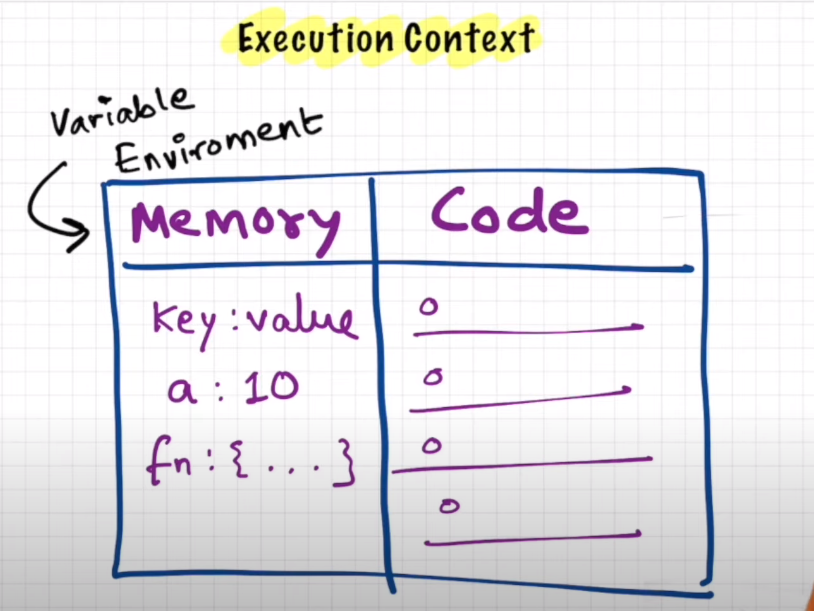 Execution Context
Variable
Enviroment
Memory
Code
key : value
a : 10
fn : { ... }